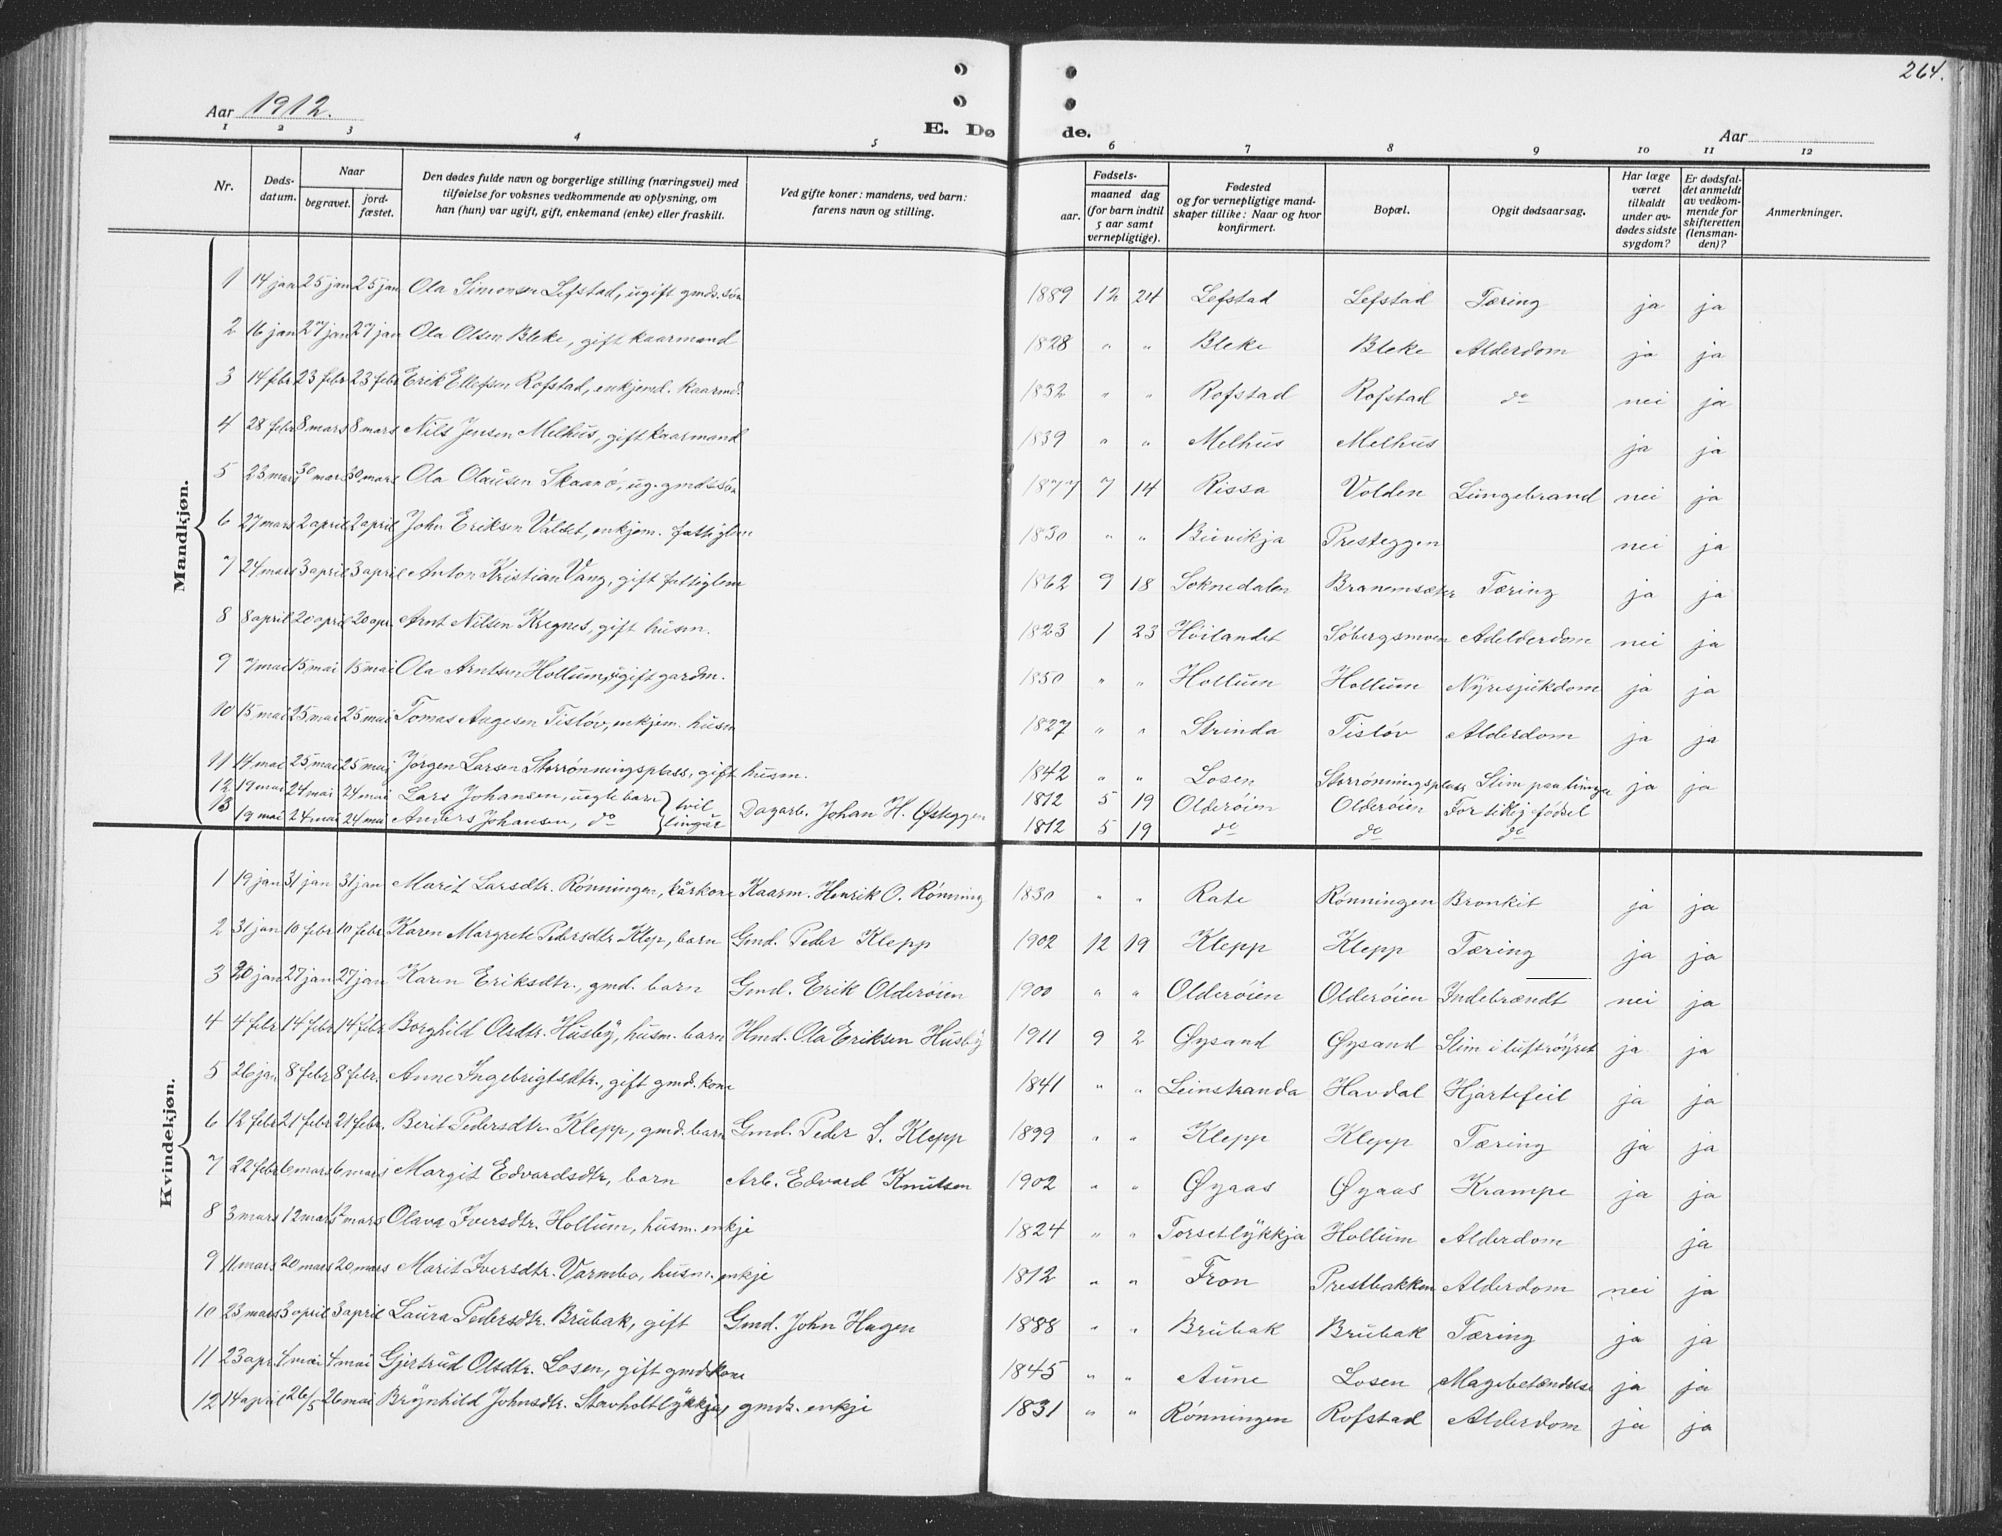 264.
Aar 1912.
E. Dø de.
Aar
1 2 3 4 5 6 7 8 9 10 11 12
Nr.
Døds-
datum.
Naar
begravet.
jord-
fæstet.
Den dødes fulde navn og borgerlige stilling (næringsvei) med
tilføielse for voksnes vedkommende av oplysning, om
han (hun) var ugift, gift, enkemand (enke) eller fraskilt.
Ved gifte koner: mandens, ved barn:
farens navn og stilling.
Fødsels-
aar.
maaned dag
(for barn indtil
5 aar samt
vernepligtige).
Fødested
og for vernepligtige mand-
skaper tillike: Naar og hvor
konfirmert.
Bopæl.
Opgit dødsaarsag.
Har læge
været
tilkaldt
under av-
dødes sidste
sygdom?
Er dødsfal-
det anmeldt
av vedkom-
mende for
skifteretten
(lensman-
den)?
Anmerkninger.
Mandkjøn.
1 14 jan 25 jan 25 jan Ola Simonsen Lefstad, ugift gmds. søn 1889 12 24 Lefstad Lefstad Tæring ja ja
2 16 jan 27 jan 27 jan Ola Olsen Bleke, gift kaarmand 1828 " " Bleke Bleke Alderdom ja ja
3 14 febr 23 febr 23 febr Erik Ellefsen Rofstad, enkjemd. kaarmd. 1832 " " Rofstad Rofstad do nei ja
4 28 febr 8 mars 8 mars Nils Jensen Melhus, gift kaarmand 1839 " " Melhus Melhus ja ja
5 23 mars 30 mars 30 mars Ola Olausen Skaanø, ug. gmdssøn 1877 7 14 Rissa Volden Lungebrand nei ja
6 27 mars 2 april 2 april John Eriksen Valdet, enkjem. fattiglem 1830 " " Buvikja Presteggen nei ja
7 24 mars 3 april 3 april Anton Kristian Vang, gift fattiglem 1862 9 18 Soknedalen Branemsæter Tæring ja ja
8 8 april 20 april 20 apr. Arnt Nilsen Kregnes, gift husm. 1823 1 23 Høilandet Søbergsmoen Adelderdom nei ja
9 7 mai 15 mai 15 mai Ola Arntsen Hollum, gift gardm. 1850 " " Hollum Hollum Nyresjukdom ja ja
10 15 mai 25 mai 25 mai Tomas Aagesen Tisløv, enkjem. husm 1827 " " Strinda Tisløv Alderdom ja ja
11 14 mai 25 mai 25 mai Jørgen Larsen Storrønningsplass, gift husm. 1842 " " Losen Storrønningsplass Slim paa lunga ja ja
12 19 mai 24 mai 24 mai Lars Johansen, uegte barn } tvil Dagarb. Johan H. Østeggen 1812 5 19 Olderøien Olderøien For tidlig fødsel
13 19 mai 24 mai 24 mai Anders Johansen, do } lingar 1812 5 19 do do do
Kvindekjøn.
1 19 jan 31 jan 31 jan Marit Larsdtr. Rønningen, kårkone Kaarm. Henrik O. Rønning 1830 " " Rate Rønningen Bronkit ja ja
2 31 jan 10 febr 10 febr Karen Margrete Pedersdtr Klep, barn Gmd. Peder Klepp 1902 12 19 Klepp Klepp Tæring ja ja
3 20 jan 27 jan 27 jan Karen Eriksdtr., gmd. barn Gmd. Erik Olderøien 1900 " " Olderøien Olderøien Indebrændt nei ja
4 4 febr 14 febr 14 febr Borghild Olsdtr. Husby, husm. barn Hmd. Ola Eriksen Husby 1911 9 2 Øysand Øysand Slim i luftrøyret ja ja
5 26 jan 8 febr 8 febr. Anne Ingebrigtsdtr., gift gmd. kone 1841 " " Leinstranda Havdal Hjartefeil ja ja
6 12 febr 21 febr 21 febr. Berit Pedersdtr. Klepp, gmd. barn Gmd. Peder S. Klepp 1899 " " Klepp Klepp Tæring ja ja
7 22 febr 6 mars 6 mars Margit Edvardsdtr, barn Arb. Edvard Knutsen 1902 " " Øyaas Øyaas Krampe ja ja
8 3 mars 12 mars 12 mars Olava Iversdtr. Hollum, husm. enkje 1824 " " Torsetlykkja Hollum Alderdom ja
9 11 mars 20 mars 20 mars Marit Iversdtr. Varmbo, husm. enkje 1812 " " Fron Prestbakken Alderdom nei ja
10 23 mars 3 april 3 april Laura Pedersdtr. Brubak, gift Gmd. John Hagen 1888 " " Brubak Brubak Tæring ja ja
11 23 apr 4 mai 4 mai Gjertrud Olsdtr. Losen, gift gmdskone 1845 " " Aune Losen Magebetændelse ja ja
12 14 april 26/5 26 mai Brynhild Johnsdtr. Stavholtlykkja, gmds. enkje 1831 " " Rønningen Rofstad Alderdom ja ja